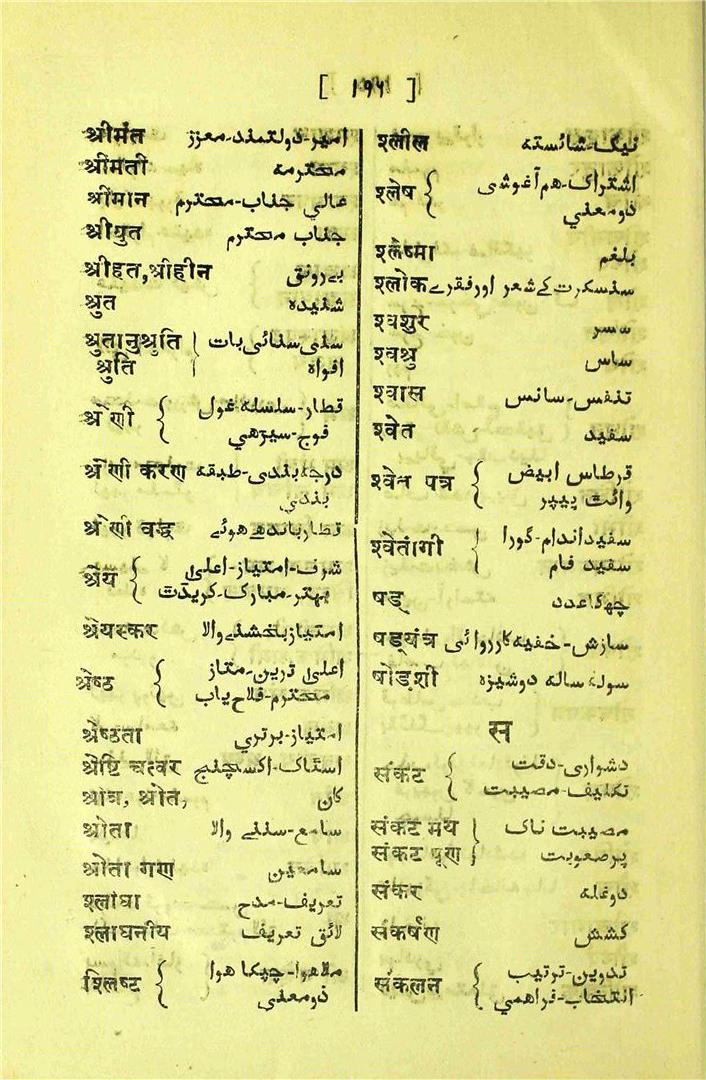 [ ۱۹۶ ]
श्रीमंत امیر-دولتمند-معزز
श्रीमती محترمہ
श्रीमान عالی جناب-محترم
श्रीयुत جناب محترم
श्रीहत,श्रीहीन بےرونق
श्रुत شنیدہ
श्रुतानुश्रुति سنی سنائی بات
श्रुति افواہ
श्रेणी { قطار-سلسلہ غول
فوج-سیڑھی
श्रेणी करण درجہ بندی-طبقہ
بندی
श्रेणी वद्ध قطار باندھے ھوئے
श्रेय { شرف-امتیاز-اعلیٰ
بہتر-مبارک-کریڈٹ
श्रेयस्कर امتیاز بخشنے والا
श्रेष्ठ { اعلیٰ ترین-ممتاز
محترم-فلاح یاب
श्रेष्ठता امتیاز-برتری
श्रेष्टि चत्वर اسٹاک-اکسچنج
श्रोत्र, श्रोत, کان
श्रोता سامع-سننے والا
श्रोता गण سامعین
श्लाघा تعریف-مدح
श्लाघनीय لائق تعریف
श्लिष्ट { ملاھوا-چپکا ھوا
ذومعنی
श्लील نیک-شائستہ
श्लेष { اشتراک-ھم آغوشی
ذومعنی
श्लेष्मा بلغم
श्लोक سنسکرت کے شعر اور فقرے
श्वशुर سسر
श्वश्रु ساس
श्वास تنفس-سانس
श्वेत سفید
श्वेत पत्र { قرطاس ابیض
وائٹ پیپر
श्वेतांगी { سفید اندام-گورا
سفید فام
षड् چھ کا عدد
षड्यंत्र سازش-خفیہ کارروائی
षोड़शी سولہ سالہ دوشیزہ
स
संकट { دشواری-دقت
تکلیف-مصیبت
संकट मय مصیبت ناک
संकट पूर्ण پرصعوبت
संकर دوغلہ
संकर्षण کشش
संकलन { تدوین-ترتیب
انتخاب-فراھمی